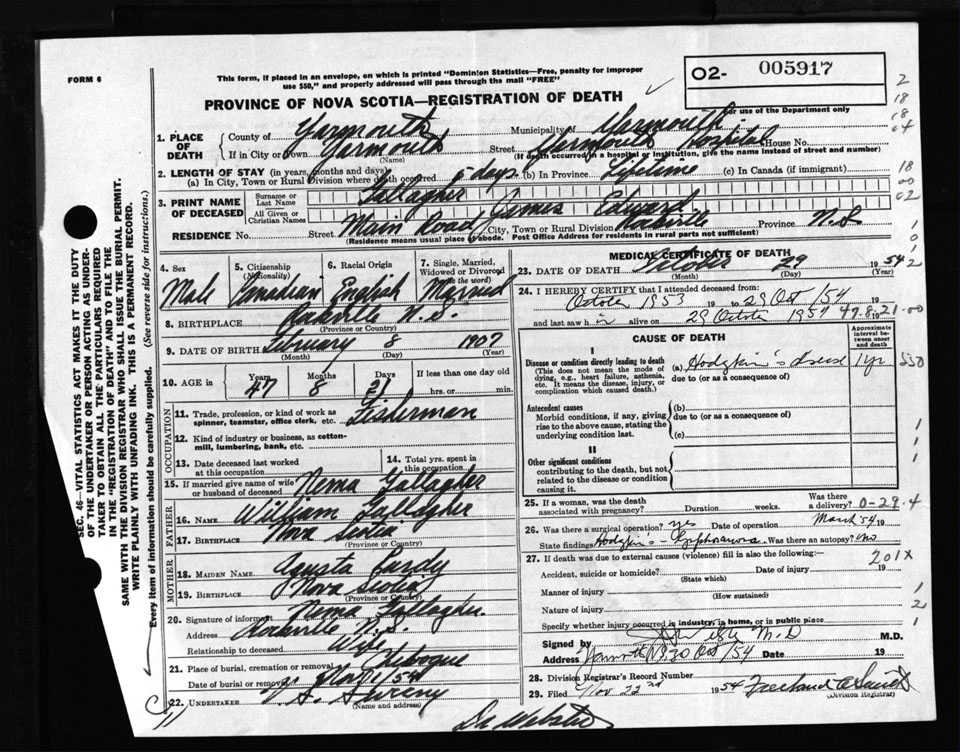 FORM 6
This form, if placed in an envelope, on which is printed "Dominion Statistics—Free, penalty for improper
use $50," and properly addressed will pass through the mail "FREE"
O2- 005917
PROVINCE OF NOVA SCOTIA—REGISTRATION OF DEATH
For use of the Department only
2
18
18
04
1. PLACE OF DEATH County of Yarmouth Municipality of Yarmouth
If in City or Town Yarmouth (Name) Street Yarmouth Hospital House No.
(If death occurred in a hospital or institution, give the name instead of street and number)
2. LENGTH OF STAY (in years, months and days)
(a) In City, Town or Rural Division where death occurred 6 days (b) In Province Lifetime (c) In Canada (if immigrant)
18
00
02
3. PRINT NAME OF DECEASED Surname or Last Name Gallagher
All Given or Christian Names James Edward
RESIDENCE No. Street Main Road City, Town or Rural Division Rockville Province N.S
(Residence means usual place of abode. Post Office Address for residents in rural parts not sufficient)
1
0
1
2
4. Sex Male
5. Citizenship (Nationality) Canadian
6. Racial Origin English
7. Single, Married, Widowed or Divorced (write the word) Married
8. BIRTHPLACE Rockville N.S.
(Province or Country)
9. DATE OF BIRTH February 8 1907
(Month) (Day) (Year)
10. AGE in Years 47 Months 8 Days 21 If less than one day
hrs. or min.
OCCUPATION
11. Trade, profession, or kind of work as
spinner, teamster, office clerk, etc. Fisherman
12. Kind of industry or business, as cotton-
mill, lumbering, bank, etc.
13. Date deceased last worked
at this occupation
14. Total yrs. spent in
this occupation
15. If married give name of wife
or husband of deceased Nema Gallagher
FATHER
16. NAME William Gallagher
17. BIRTHPLACE Nova Scotia
(Province or Country)
MOTHER
18. MAIDEN NAME
19. BIRTHPLACE Nova Scotia
(Province or Country)
20. Signature of informant Nema Gallagher
Address Rockville N.S.
Relationship to deceased Wife
21. Place of burial, cremation or removal Chebogue
Date of burial or removal Nov 1/54
22. UNDERTAKER V. S. Sweeny
(Name and address)
MEDICAL CERTIFICATE OF DEATH
23. DATE OF DEATH October 29 1954
(Month) (Day) (Year)
24. I HEREBY CERTIFY that I attended deceased from:
October 1953 19 to 29 Oct /54 19
and last saw h im alive on 29 October 1954 47.8.21-00
CAUSE OF DEATH
Approximate interval between onset and death
I
Disease or condition directly leading to death
(This does not mean the mode of
dying, e.g., heart failure, asthenia,
etc. It means the disease, injury, or
complication which caused death.)
(a) Hodgkin's disease 1 yr
due to (or as a consequence of)
Antecedent causes
Morbid conditions, if any, giving
rise to the above cause, stating the
underlying condition last.
(b)
due to (or as a consequence of)
(c)
1
1
II
Other significant conditions
contributing to the death, but not
related to the disease or condition
causing it.
1
25. If a woman, was the death
associated with pregnancy? Duration weeks. Was there a delivery? 0-29-4
26. Was there a surgical operation? yes Date of operation March 54 19
State findings Was there an autopsy? no
27. If death was due to external causes (violence) fill in also the following:— 201X
Accident, suicide or homicide? Date of injury 19
(State which)
Manner of injury
(How sustained)
1
Nature of injury
2
Specify whether injury occurred in industry, in home, or in public place
1
Signed by M.D M.D.
Address Yarmouth NS 30 Oct /54 Date 19
28. Division Registrar's Record Number
29. Filed Nov 22nd 1954
(Division Registrar)
Dr Webster
SEC. 46—VITAL STATISTICS ACT MAKES IT THE DUTY
OF THE UNDERTAKER OR PERSON ACTING AS UNDER-
TAKER TO OBTAIN ALL THE PARTICULARS REQUIRED
IN THE "REGISTRATION OF DEATH" AND TO FILE THE
SAME WITH THE DIVISION REGISTRAR WHO SHALL ISSUE THE BURIAL PERMIT.
WRITE PLAINLY WITH UNFADING INK. THIS IS A PERMANENT RECORD.
Every item of information should be carefully supplied. (See reverse side for instructions.)